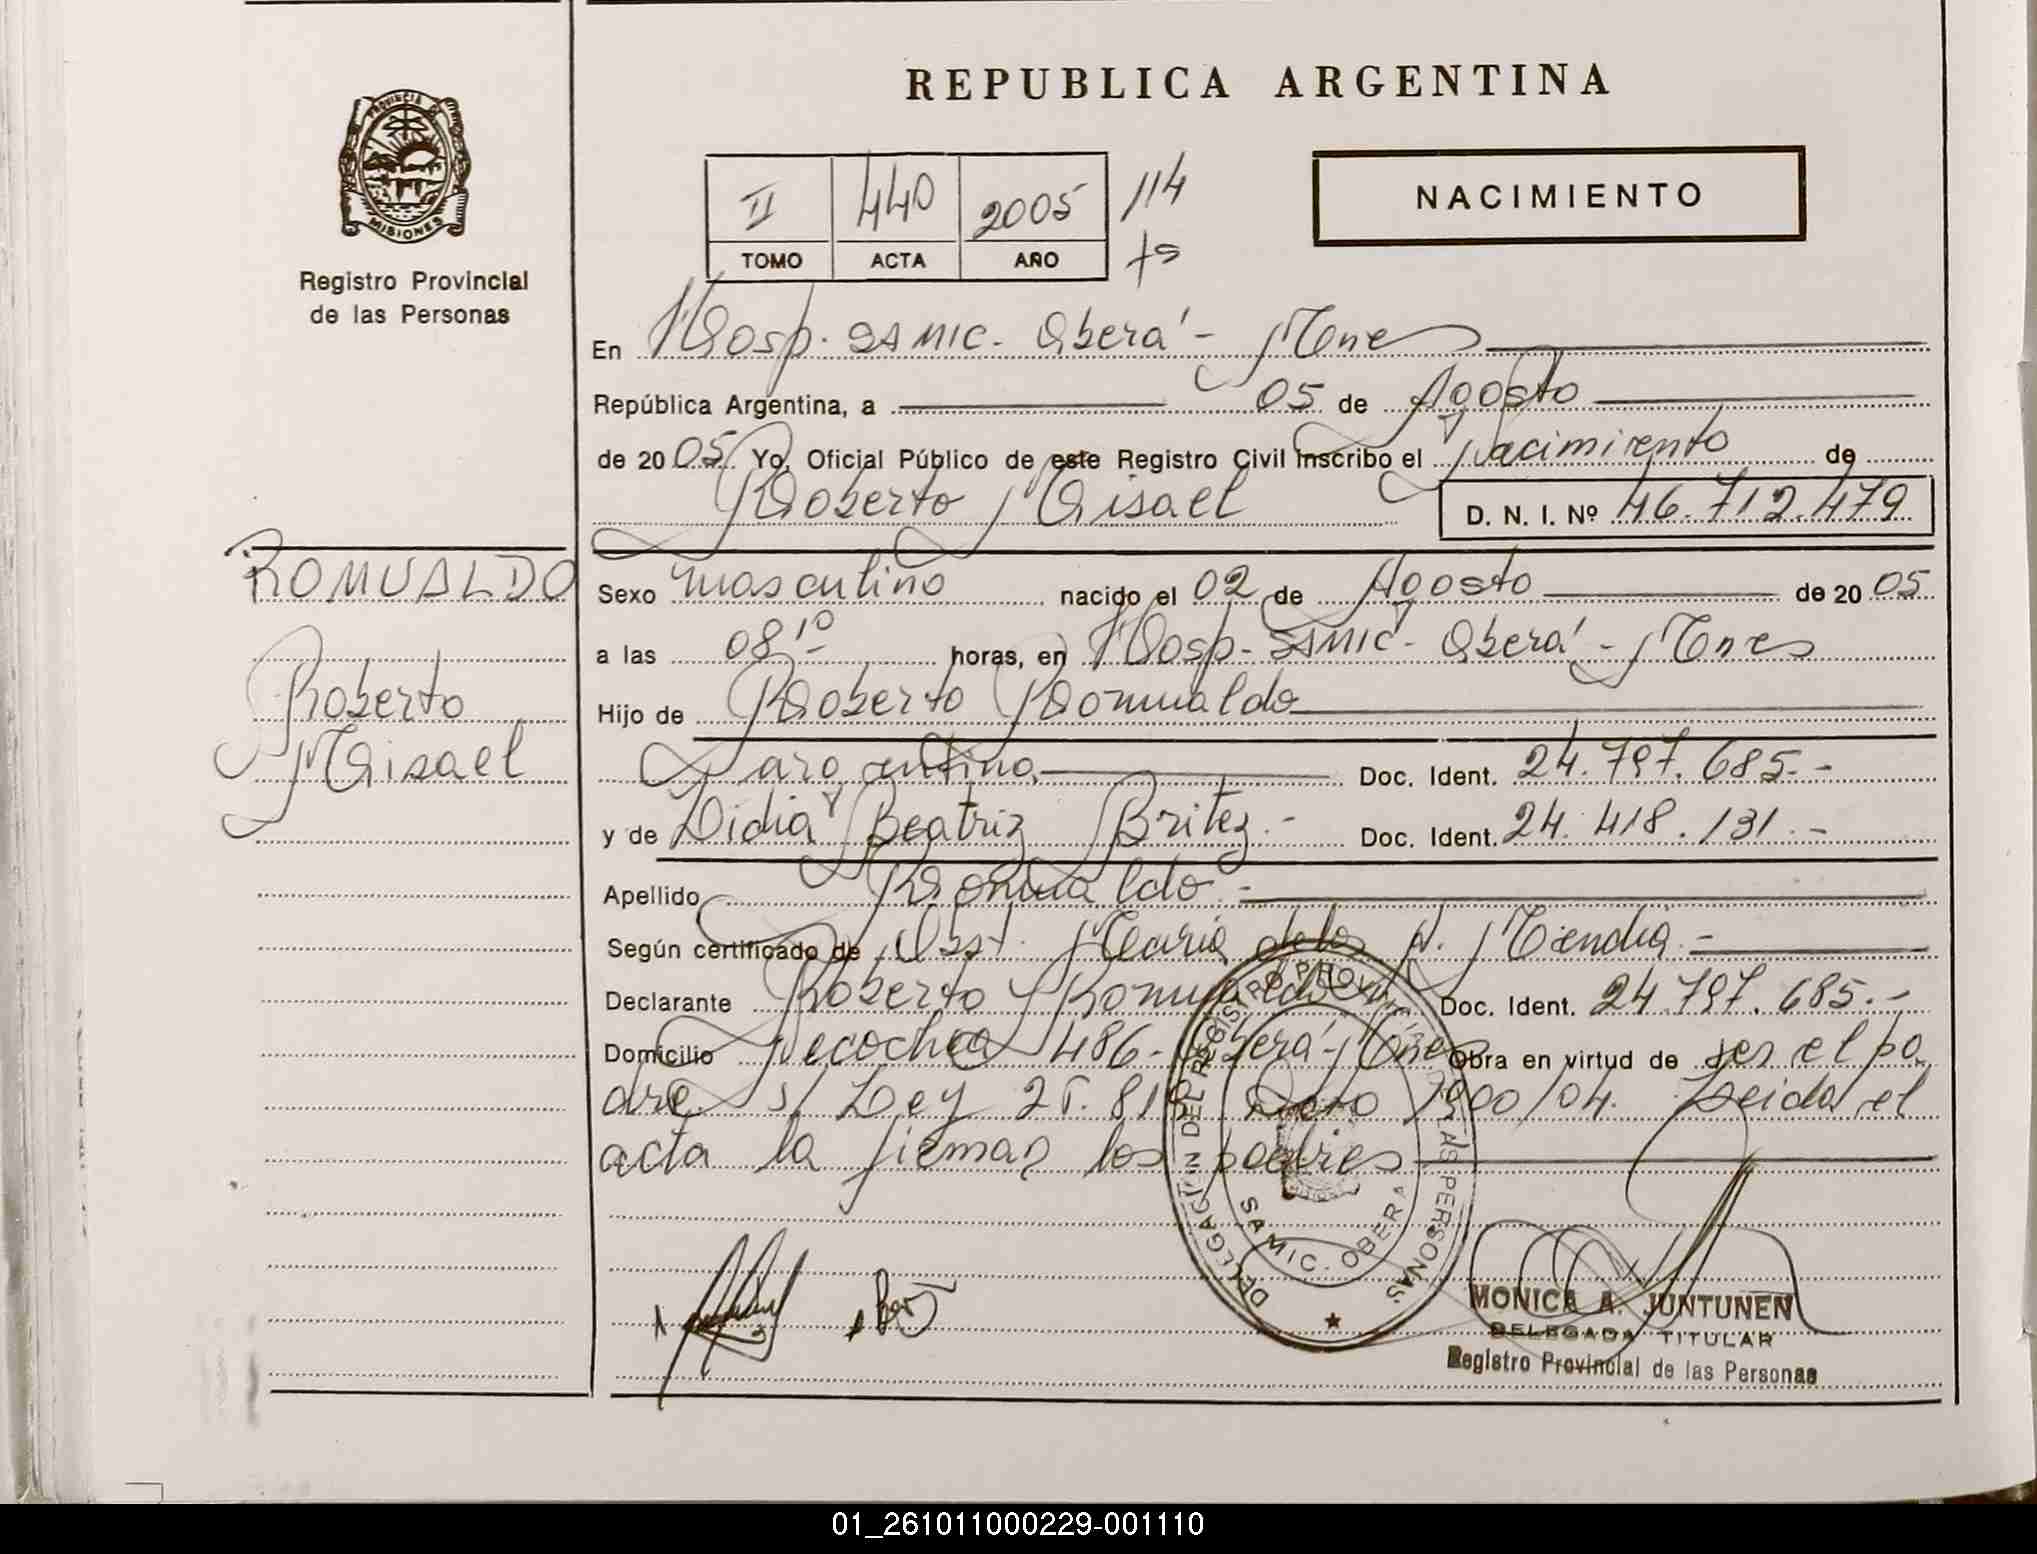 REPUBLICA ARGENTINA
PROVINCIA DE
MISIONES
Registro Provincial
de las Personas
II 440 2005 114
TOMO ACTA AÑO
NACIMIENTO
En Hosp. SAMIC. Oberá - Mnes
República Argentina, a 05 de Agosto
de 2005 Yo, Oficial Público de este Registro Civil inscribo el Nacimiento de
Roberto Misael D. N. I. Nº 46.712.479
ROMUALDO
Roberto
Misael
Sexo masculino nacido el 02 de Agosto de 2005
a las 08 10 horas, en Hosp - SAMIC - Oberá - Mnes
Hijo de Roberto Romualdo
argentino. Doc. Ident. 24.797.685.-
y de Lidia Beatriz Britez.- Doc. Ident. 24.418.131.-
Apellido Romualdo -
Según certificado de Obst. María de los A. Mendia.-
Declarante Roberto Romualdo Doc. Ident. 24.797.685.-
Domicilio Necochea 486 - Oberá - Mnes Obra en virtud de ser el pa
dre s/ Ley 25.819 Dcto 1900/04. Leida el
acta la firman los padres
DELEGACION DEL REGISTRO PROVINCIAL DE LAS PERSONAS
SAMIC - OBERA
MONICA A. JUNTUNEN
DELEGADA TITULAR
Registro Provincial de las Personas
01_261011000229-001110